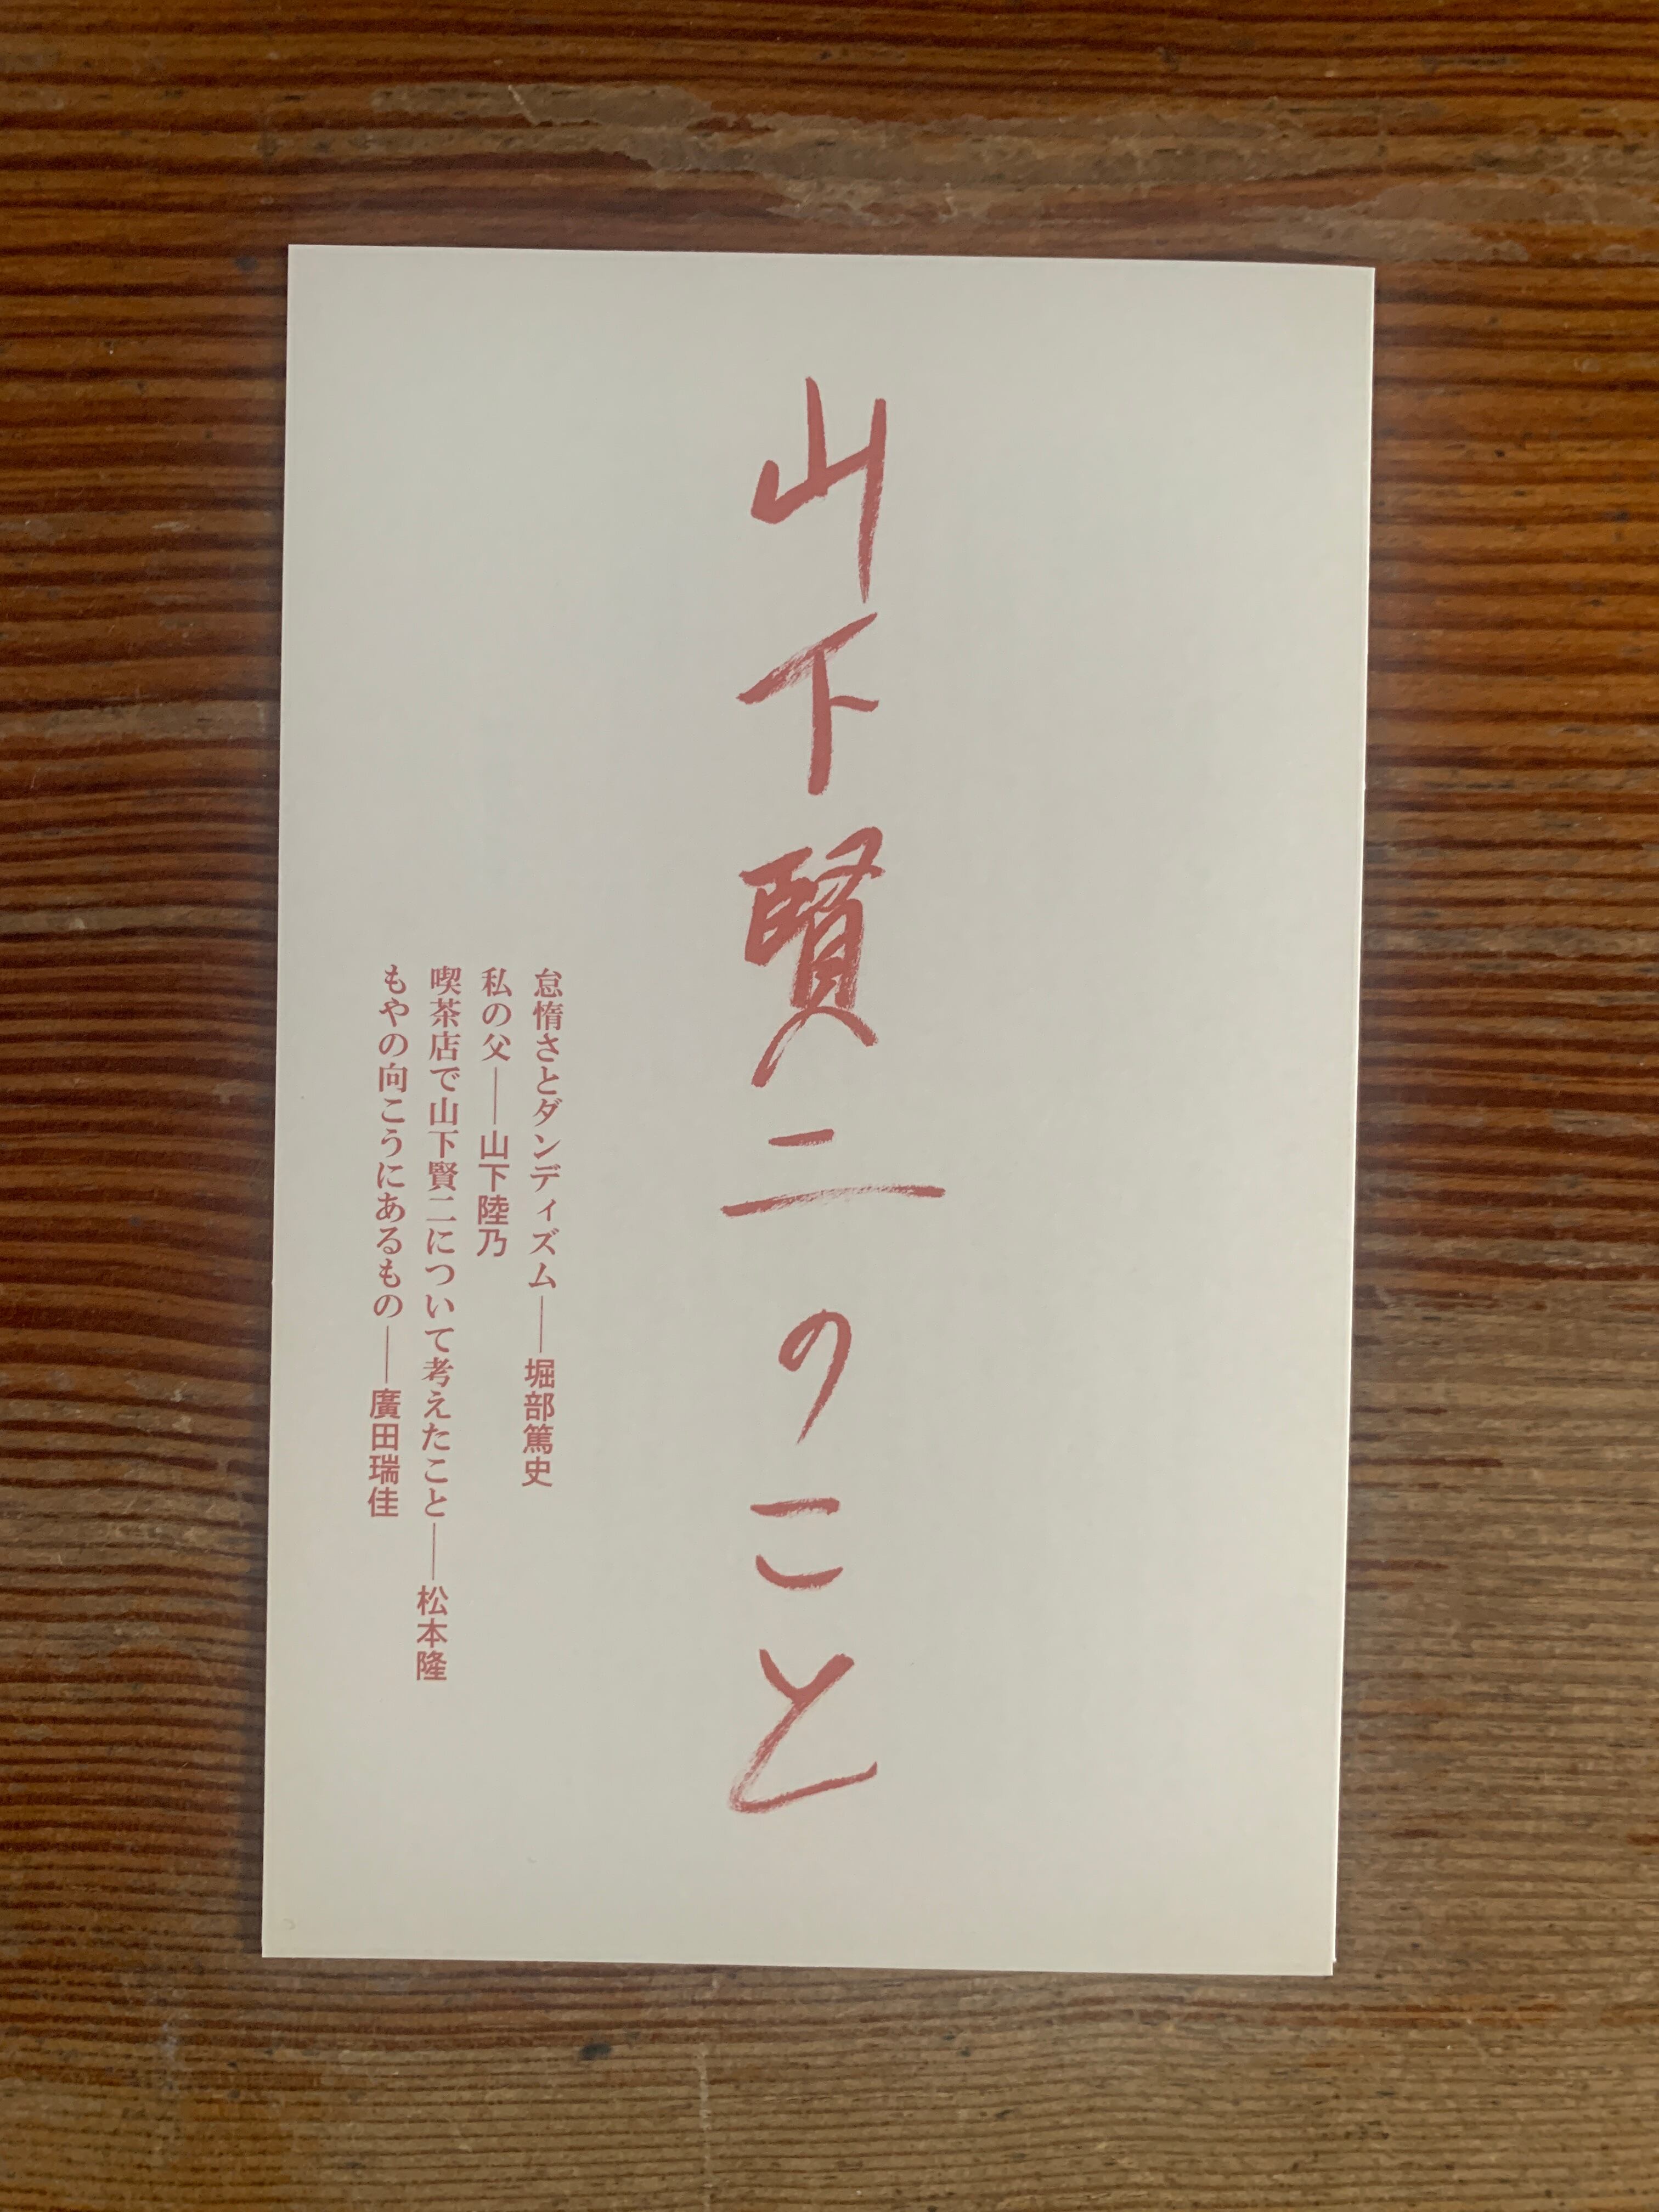 山下賢二のこと
怠惰さとダンディズム――堀部篤史
私の父――山下陸乃
喫茶店で山下賢二について考えたこと――松本隆
もやの向こうにあるもの――廣田瑞佳